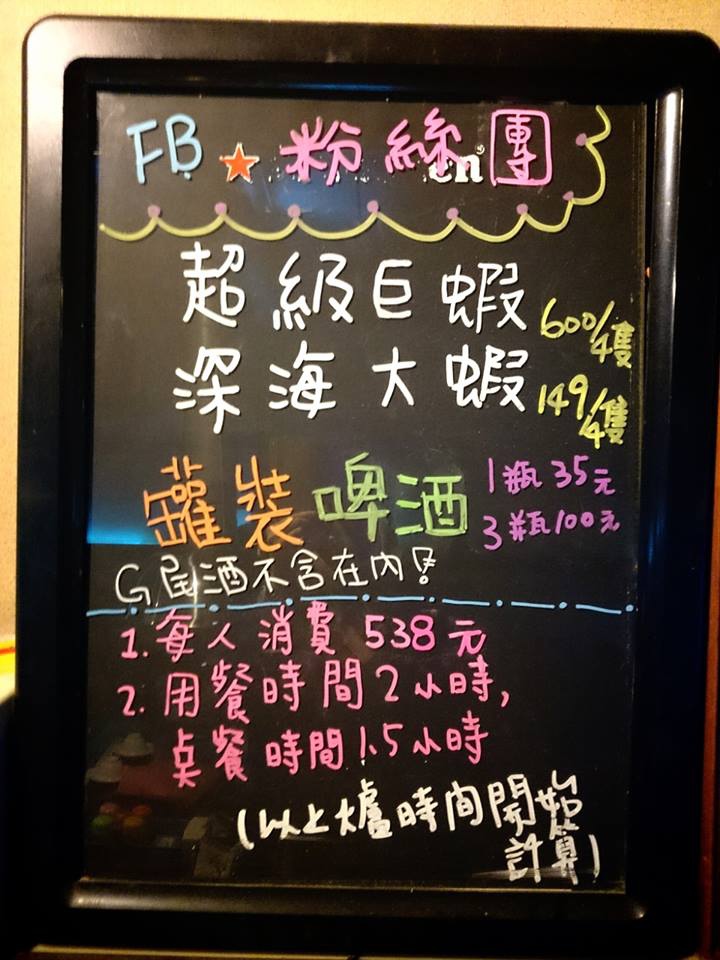 FB★粉絲團
en
超級巨蝦 600/4隻
深海大蝦 149/4隻
罐裝啤酒 1瓶35元
3瓶100元
G尾酒不含在內!
1. 每人消費 538元
2. 用餐時間2小時,
点餐時間1.5小時
(以上爐時間開始
計算)